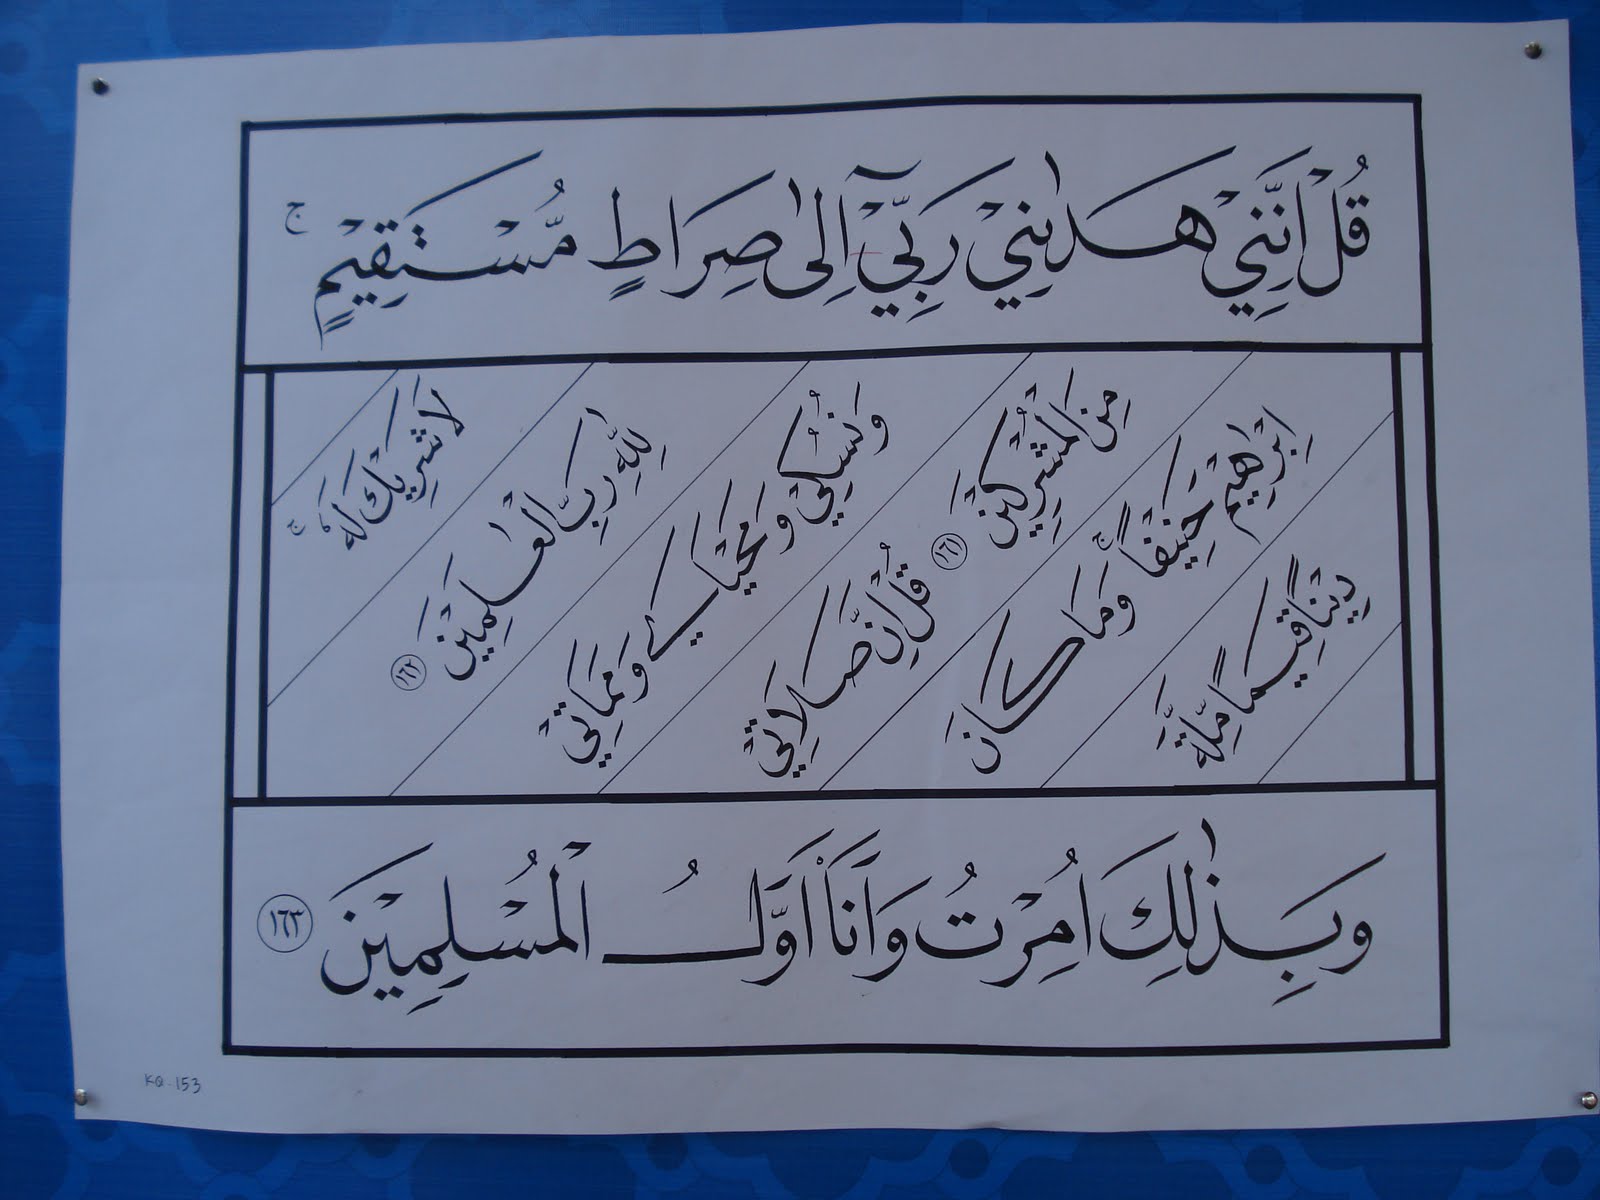 قُلْ اِنَّنِيْ هَدٰىنِيْ رَبِّيْٓ اِلٰى صِرَاطٍ مُّسْتَقِيْمٍ ۚ
دِيْنًا قِيَمًا مِّلَّةَ
اِبْرٰهِيْمَ حَنِيْفًا ۚ وَمَا كَانَ
مِنَ الْمُشْرِكِيْنَ ١٦١ قُلْ اِنَّ صَلَاتِيْ
وَنُسُكِيْ وَمَحْيَايَ وَمَمَاتِيْ
لِلّٰهِ رَبِّ الْعٰلَمِيْنَ ١٦٢
لَا شَرِيْكَ لَهٗ ۚ
وَبِذٰلِكَ اُمِرْتُ وَاَنَا۠ اَوَّلُ الْمُسْلِمِيْنَ ١٦٣
KQ-153